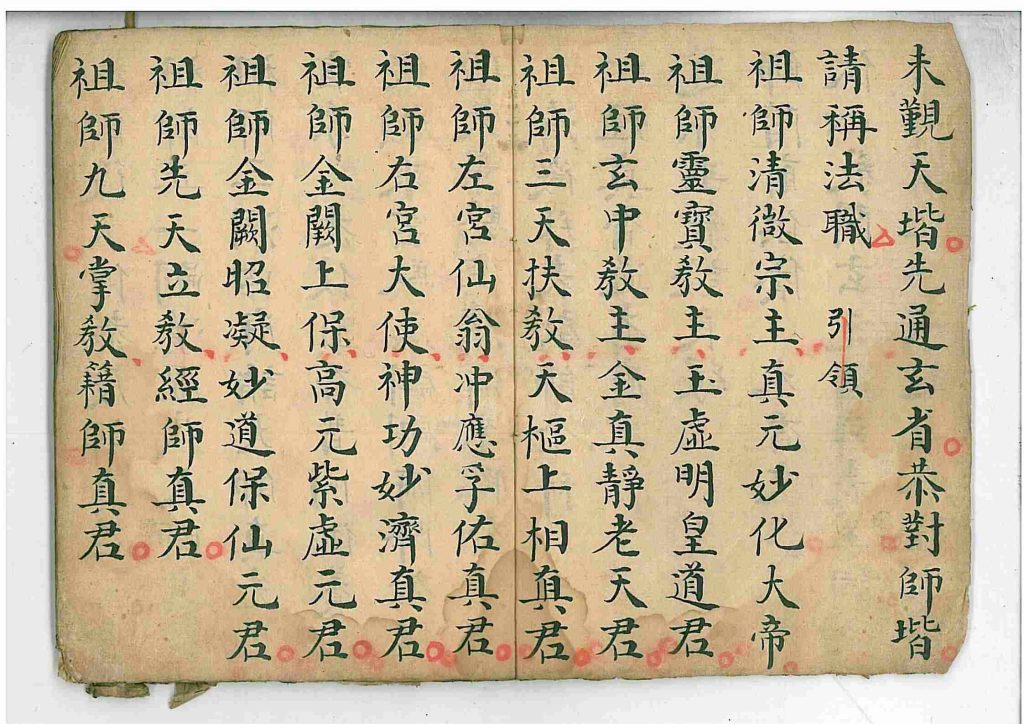 未觀天堦先通玄省恭對師堦
請稱法職 引領
祖師清微宗主真元妙化大帝
祖師靈寶教主玉虛明皇道君
祖師玄中教主金真靜老天君
祖師三天扶教天樞上相真君
祖師左宮仙翁冲應孚佑真君
祖師右宮大使神功妙濟真君
祖師金闕上保高元紫虛元君
祖師金闕昭凝妙道保仙元君
祖師先天立教經師真君
祖師九天掌教籍師真君